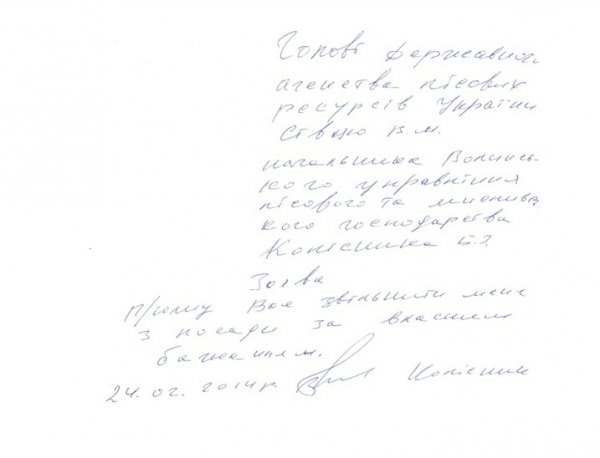 Голові Державного
агенства лісових
ресурсів України
Сівцю В.М.
начальника Волинсь-
кого управління
лісового та мислив
кого господарства
Колісника Б.І.
Заява
Прошу Вас звільнити мене
з посади за власним
бажанням.
24.02.2014р. Колісник